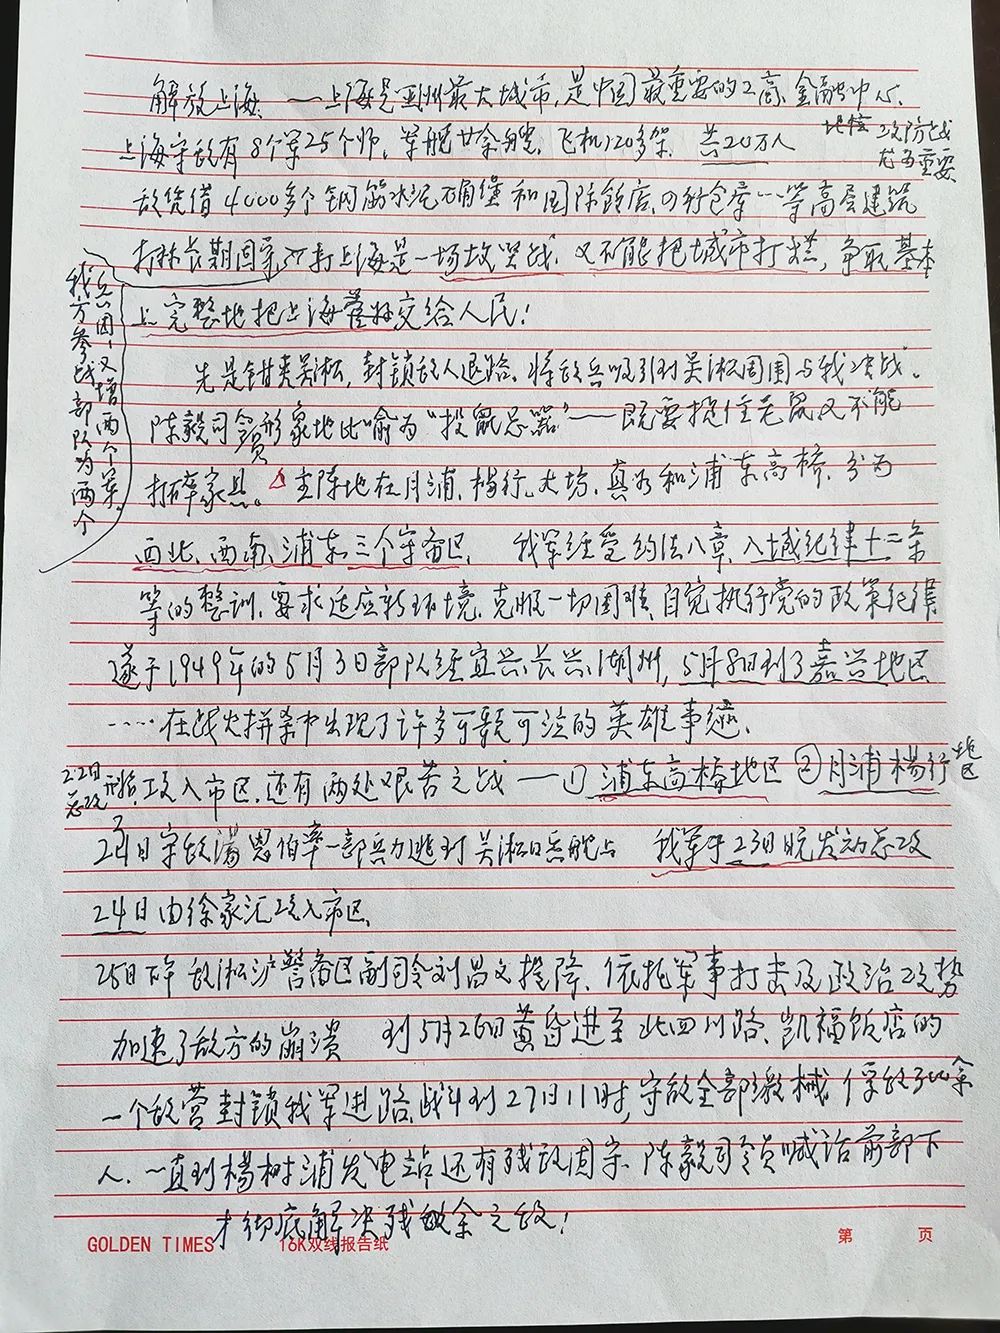 解放上海 — 上海是亚洲最大城市,是中国最重要的工商、金融中心、
地位
攻防战
尤为重要
上海守敌有8个军25个师、军舰廿余艘、飞机120多架、共20万人
敌凭借4000多个钢筋水泥碉堡和国际饭店、四行仓库一等高层建筑
长期固守 打上海是一场攻坚战、又不能把城市打烂,争取基本
上完整地把上海交给人民!
兵团,又增两个军。
我方参战部队为两个
先是钳夹吴淞,封锁敌人退路、将敌兵吸引到吴淞周围与我决战。
陈毅司令员形象地比喻为“投鼠忌器”——既要捉住老鼠又不能
打碎家具。主阵地在月浦、杨行、大场、真如和浦东高桥,分为
西北、西南、浦东三个守备区、我军经受约法八章、入城纪律十二条
等的整训,要求适应新环境,克服一切困难,自觉执行党的政策纪律
遂于1949年的5月3日部队经宜兴、长兴、湖州,5月8日到了嘉兴地区
……在战火拼杀中出现了许多可歌可泣的英雄事迹.
22日
总攻
攻入市区,还有两处艰苦之战——①浦东高桥地区 ②月浦杨行地区
日守敌汤恩伯率一部兵力逃到吴淞口兵舰上 我军于23日晚发动总攻
24日由徐家汇攻入市区、
25日下午 敌淞沪警备区副司令刘昌义投降、依托军事打击及政治攻势
加速了敌方的崩溃 到5月26日黄昏进至北四川路、凯福饭店的
一个敌营封锁我军进路、战斗到27日11时,守敌全部缴械,俘敌
人、一直到杨树浦发电站还有残敌固守、陈毅司令员喊话前部下
才彻底解决残余之敌!
GOLDEN TIMES 16K双线报告纸 第 页